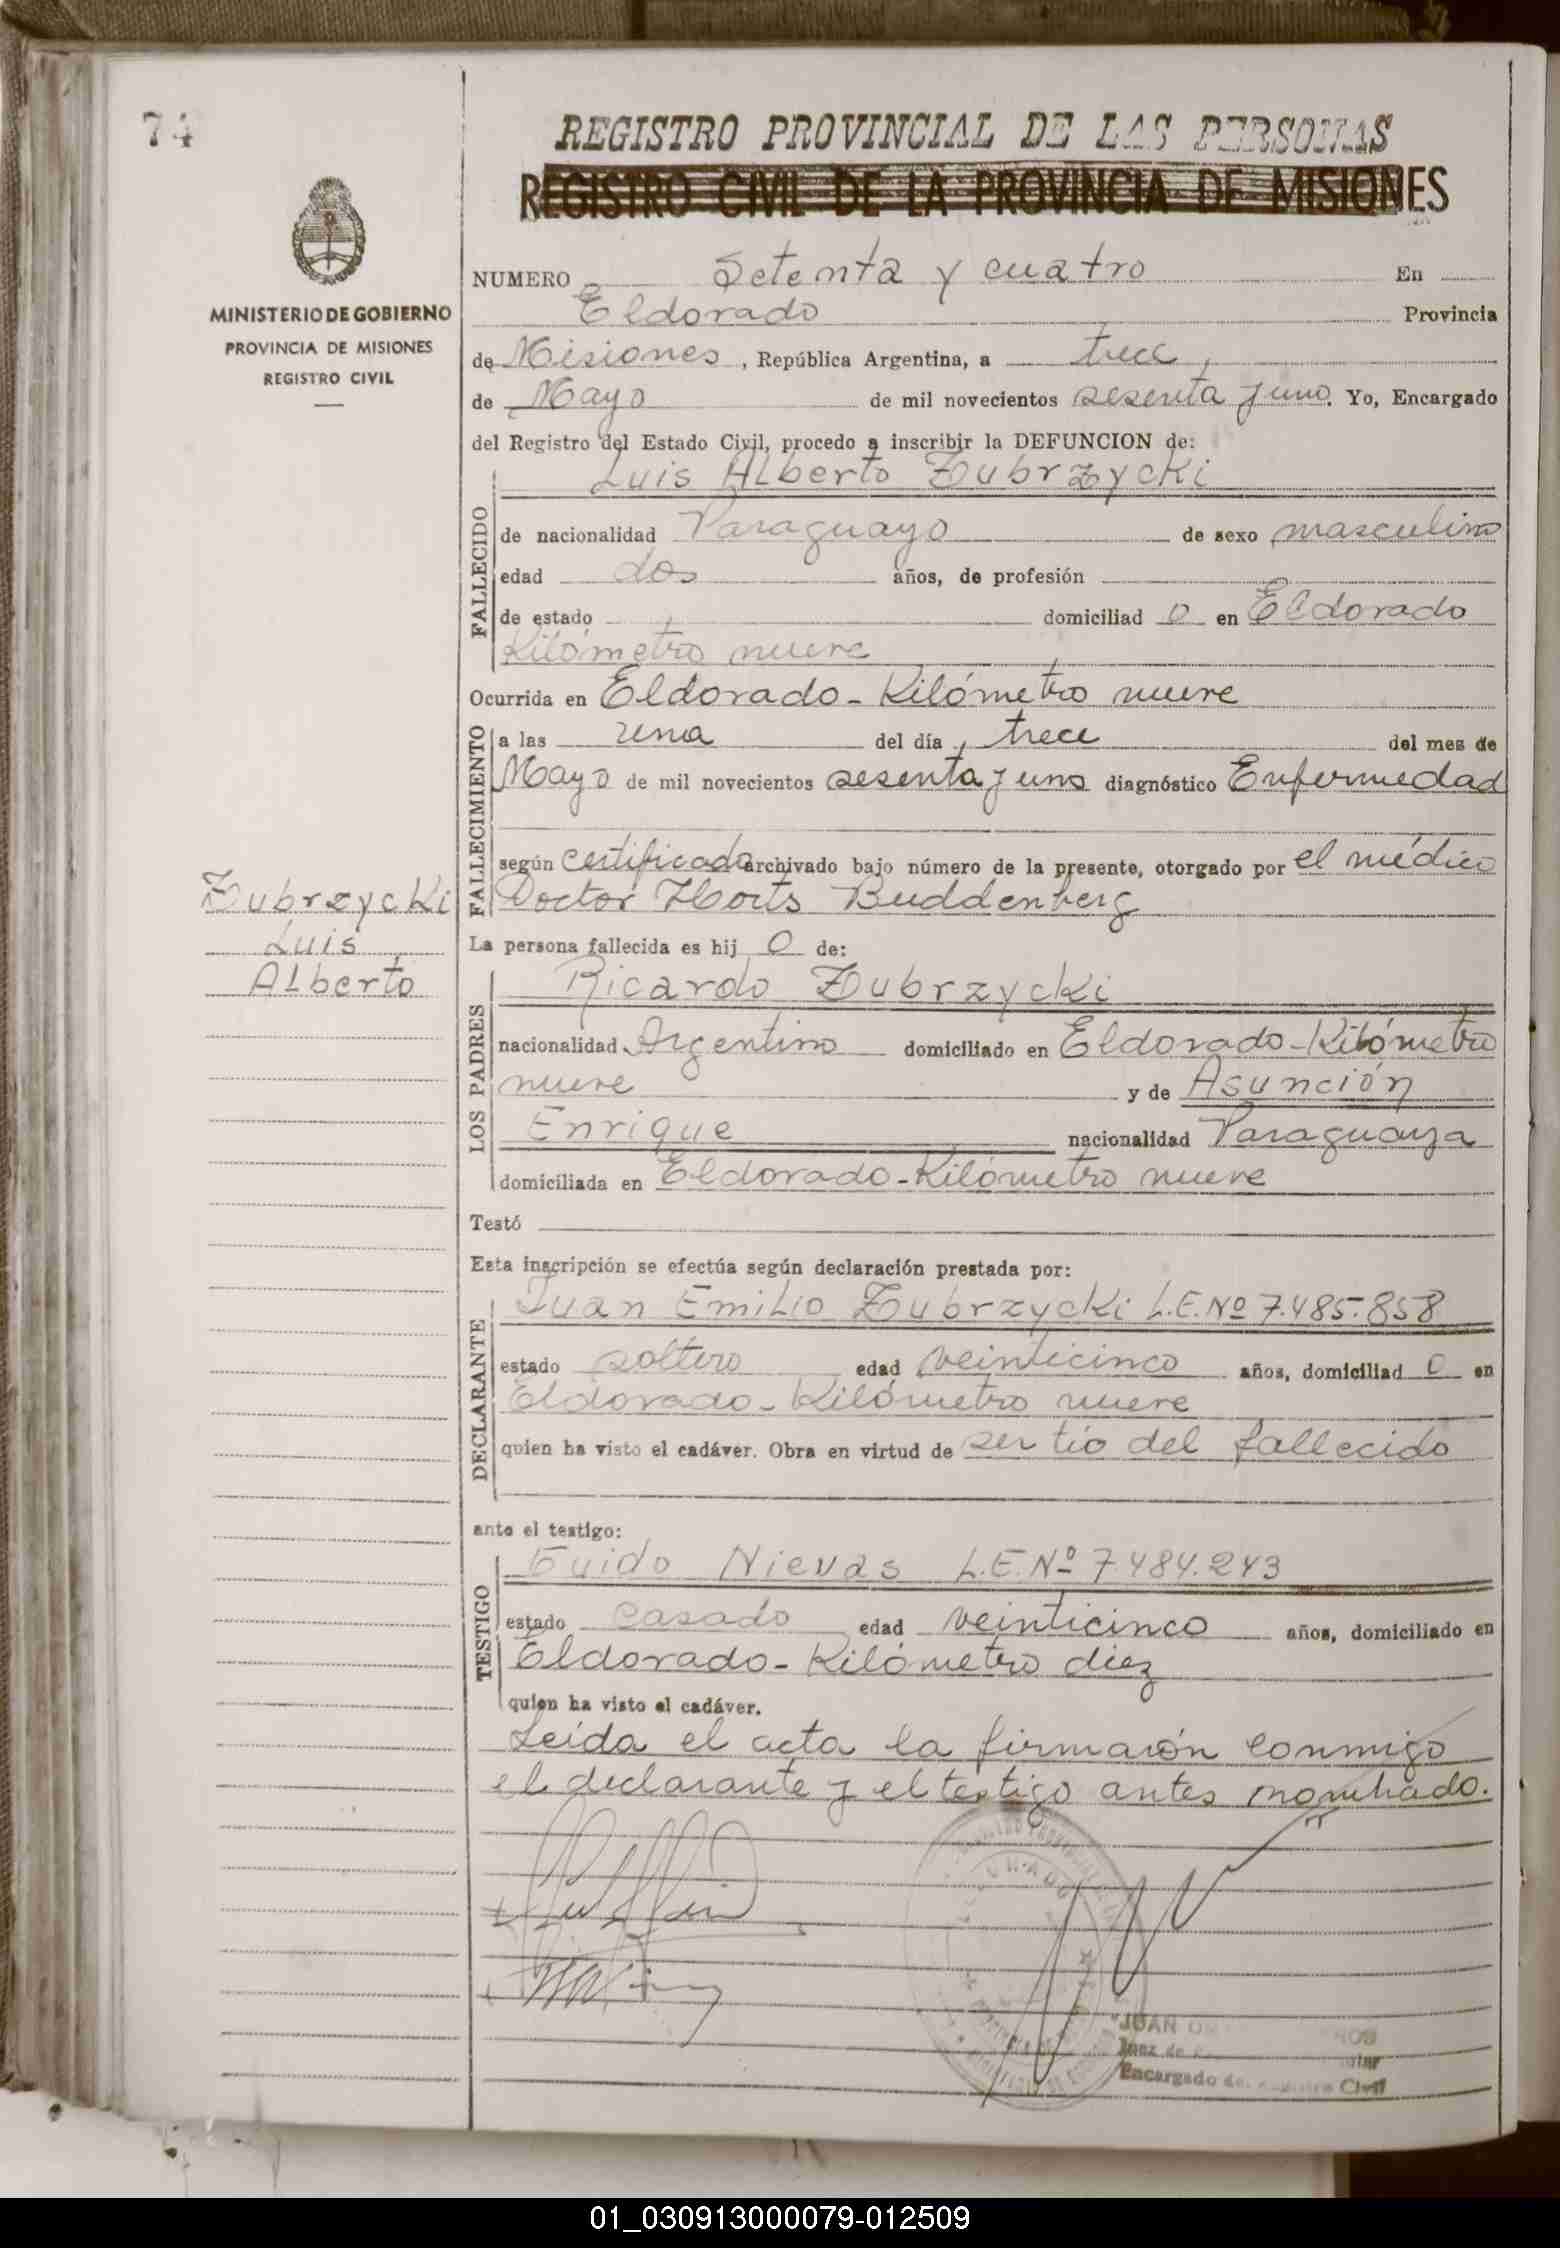 74
REGISTRO PROVINCIAL DE LAS PERSONAS
REGISTRO CIVIL DE LA PROVINCIA DE MISIONES
MINISTERIO DE GOBIERNO
PROVINCIA DE MISIONES
REGISTRO CIVIL
NUMERO Setenta y cuatro En
Eldorado Provincia
de Misiones, República Argentina, a trece
de Mayo de mil novecientos sesenta y uno. Yo, Encargado
del Registro del Estado Civil, procedo a inscribir la DEFUNCION de:
Luis Alberto Zubrzycki
FALLECIDO
de nacionalidad Paraguayo de sexo masculino
edad dos años, de profesión
de estado domiciliad o en Eldorado
Kilómetro nueve
Ocurrida en Eldorado - Kilómetro nueve
FALLECIMIENTO
a las una del día trece del mes de
Mayo de mil novecientos sesenta y uno diagnóstico Enfermedad
según certificado archivado bajo número de la presente, otorgado por el médico
Doctor Horts Buddenberg
Zubrzycki
Luis
Alberto
La persona fallecida es hij o de:
Ricardo Zubrzycki
LOS PADRES
nacionalidad Argentino domiciliado en Eldorado - Kilómetro
nueve y de Asunción
Enrique nacionalidad Paraguaya
domiciliada en Eldorado - Kilómetro nueve
Testó
Esta inscripción se efectúa según declaración prestada por:
Juan Emilio Zubrzycki L.E.Nº 7.485.858
DECLARANTE
estado soltero edad veinticinco años, domiciliad o en
Eldorado - Kilómetro nueve
quien ha visto el cadáver. Obra en virtud de ser tío del fallecido
ante el testigo:
Guido Nievas L.E.Nº 7.484.243
TESTIGO
estado casado edad veinticinco años, domiciliado en
Eldorado - Kilómetro diez
quien ha visto el cadáver.
Leída el acta la firmarón conmigo
el declarante y el testigo antes nombrado.
JUAN
Juez de
Encargado del Registro Civil
01_030913000079-012509